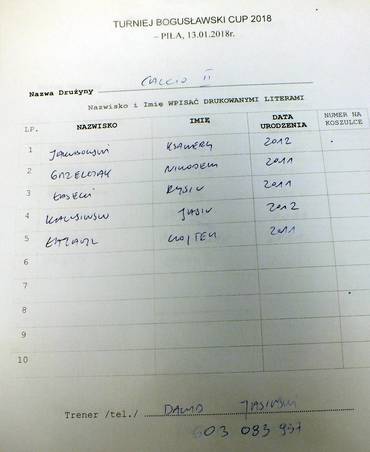 TURNIEJ BOGUSŁAWSKI CUP 2018
– PIŁA, 13.01.2018r.
Nazwa Drużyny CALCIO II
Nazwisko i Imię WPISAĆ DRUKOWANYMI LITERAMI
LP. NAZWISKO IMIĘ DATA URODZENIA NUMER NA KOSZULCE
1 KSAWERY 2012
2 GRZELCZAK NIKODEM 2011
3 ŁOSECKI RYSIU 2011
4 JASIU 2012
5 WOJTEK 2011
6
7
8
9
10
Trener /tel./ DAWID JASIŃSKI
603 083 937